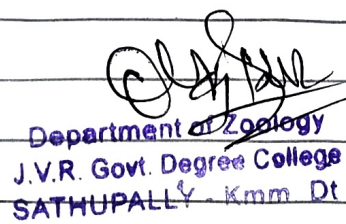 Department of Zoology
J.V.R. Govt. Degree College
SATHUPALLY - Kmm Dt